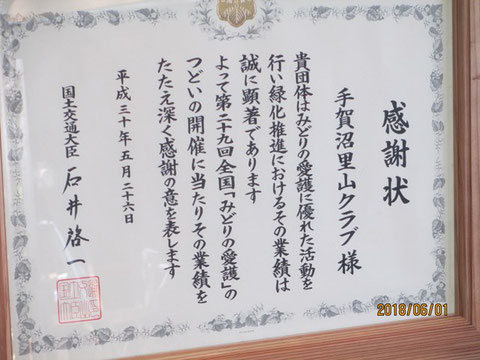 感謝状
手賀沼里山クラブ 様
貴団体はみどりの愛護に優れた活動を
行い緑化推進におけるその業績は
誠に顕著であります
よって第二十九回全国「みどりの愛護」の
つどいの開催に当たりその業績を
たたえ深く感謝の意を表します
平成三十年五月二十六日
国土交通大臣 石井啓一
2018/06/01